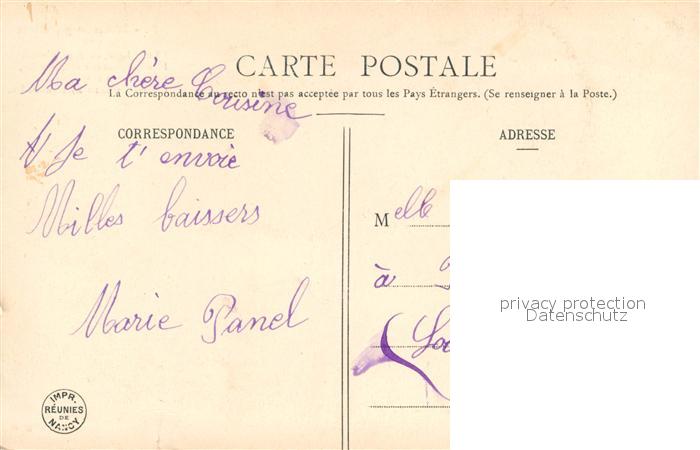 CARTE POSTALE
La Correspondance au recto n'est pas acceptée par tous les Pays Étrangers. (Se renseigner à la Poste.)
Ma chère Cousine
CORRESPONDANCE
Je t'envoie
Milles baissers
Marie Panel
IMPR.
RÉUNIES
DE
NANCY
ADRESSE
Melle
à
privacy protection
Datenschutz